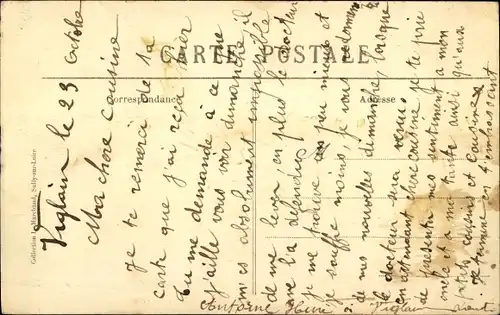 CARTE POSTALE
Correspondance
Adresse
Collection L. Marchand, Sully-sur-Loire
Viglain le 23 octobre
Ma chere cousine
Je te remerci de ta
carte que j'ai reçu hier
Tu me demande à ce que
j'aille vous voir dimanche, il
m'es absolument impossible
de me lever, en plus le docteur
me la défendu,
je me trouve un peu mieux et
je souffre moins, je vous redonnerai
de mes nouvelles dimanche, lorsque
le docteur sera venu
en attendant chere cousine je te prie
de presenter mes sentiment a mon
oncle et a ma tante ainsi qu'aux
petits cousins et cousines
Je termine en t'embrassant
Viglain